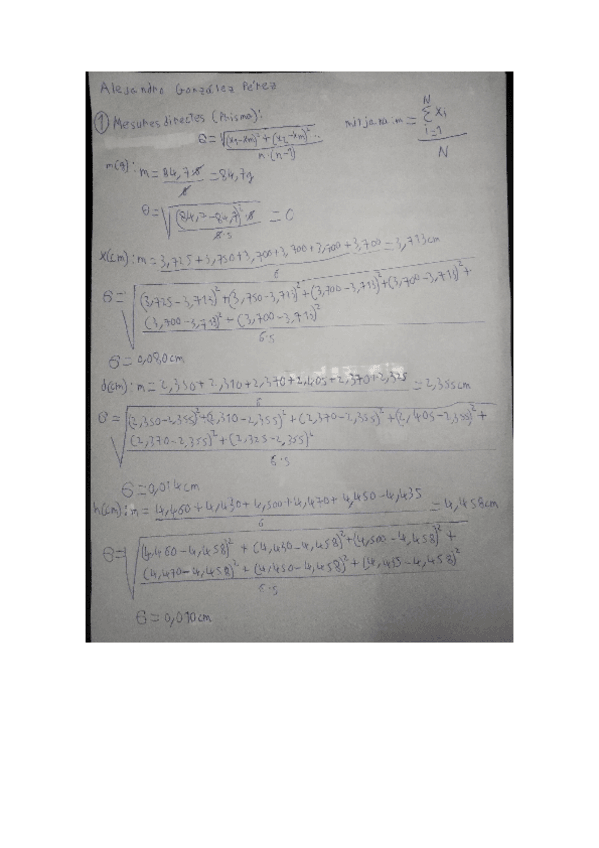 Alejandro González Pérez
① Mesures directes (Prisma):
σ = √((x₁-xm)²+(x₂-xm)².../n·(n-1)) mitjana: m = Σ(i=1, N) xᵢ / N
m(g): m = 84,7·6/6 = 84,7g
σ = √((84,7-84,7)²·6/6·5) = 0
x(cm): m = 3,725+3,750+3,700+3,700+3,700+3,700/6 = 3,713cm
σ = √((3,725-3,713)²+(3,750-3,713)²+(3,700-3,713)²+(3,700-3,713)²+
(3,700-3,713)²+(3,700-3,713)²/6·5)
σ = 0,080cm
d(cm): m = 2,350+2,310+2,370+2,405+2,370+2,325/6 = 2,355cm
σ = √((2,350-2,355)²+(2,310-2,355)²+(2,370-2,355)²+(2,405-2,355)²+
(2,370-2,355)²+(2,325-2,355)²/6·5)
σ = 0,014cm
h(cm): m = 4,460+4,430+4,500+4,470+4,450+4,435/6 = 4,458cm
σ = √((4,460-4,458)²+(4,430-4,458)²+(4,500-4,458)²+
(4,470-4,458)²+(4,450-4,458)²+(4,435-4,458)²/6·5)
σ = 0,010cm